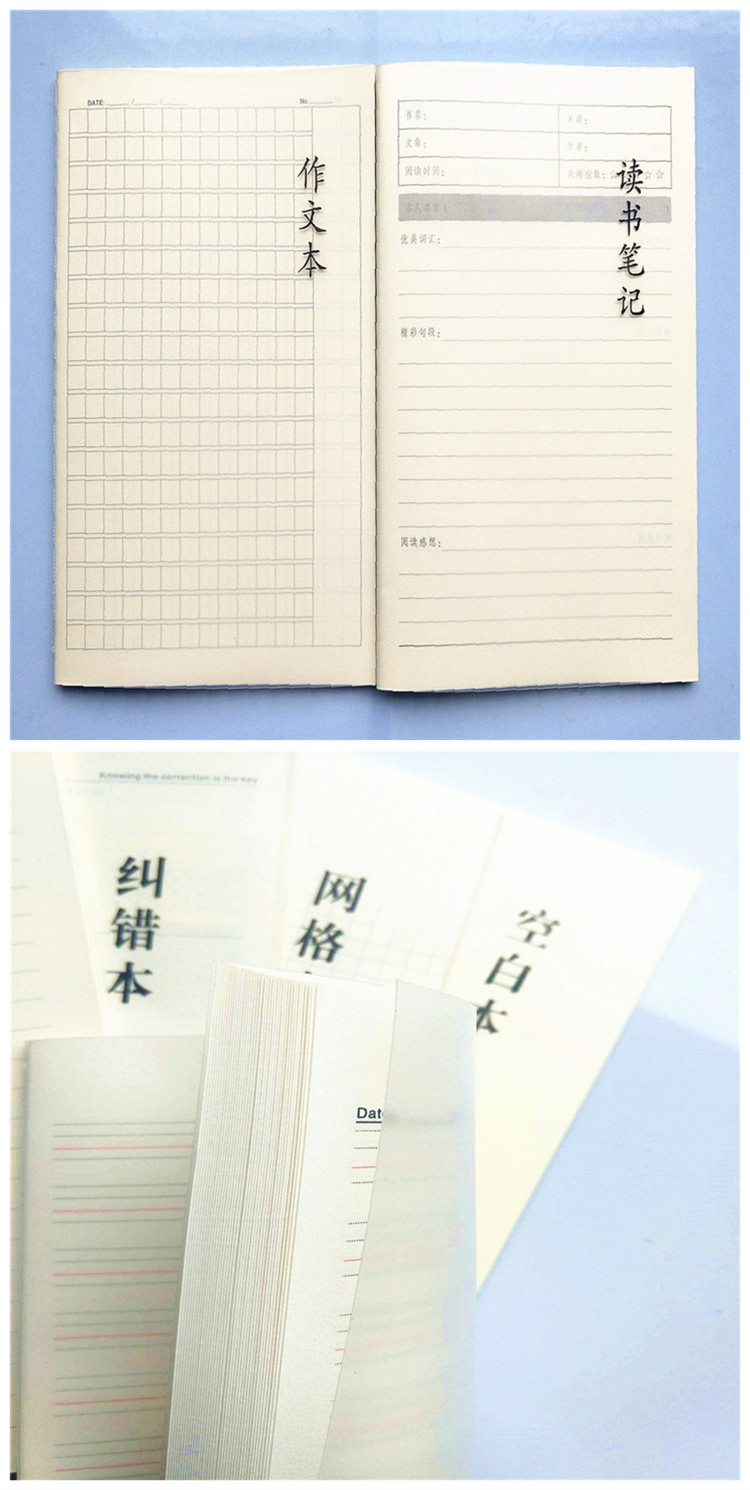 DATE: ____/____/____
No.
作文本
书名:
文章:
作者:
阅读时间:
读书笔记
优美词汇:
精彩句段:
阅读感想:
Knowing the correction is the key
纠错本
网格
空白本
Date